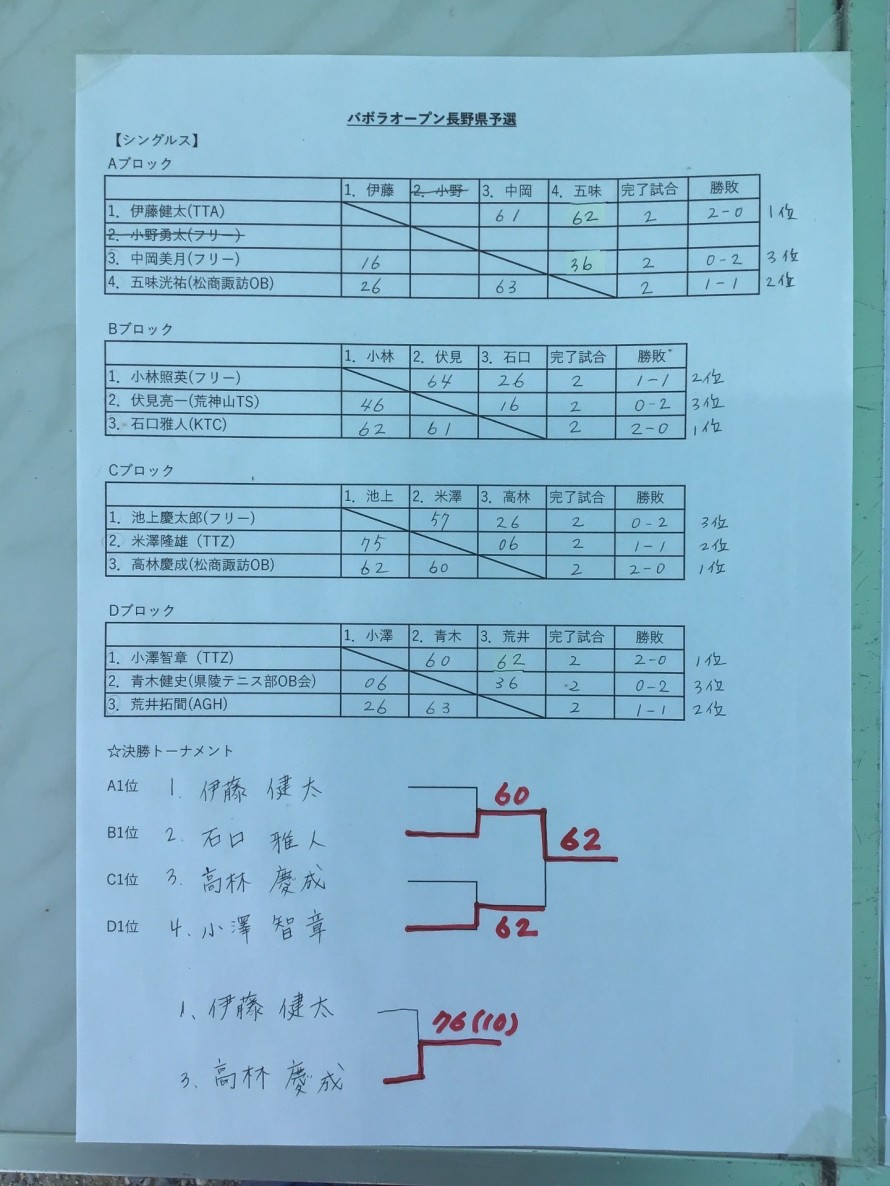 バボラオープン長野県予選
【シングルス】
Aブロック
1. 伊藤 2. 小野 3. 中岡 4. 五味 完了試合 勝敗
1. 伊藤健太(TTA) 61 62 2 2-0 1位
2. 小野勇太(フリー)
3. 中岡美月(フリー) 16 36 2 0-2 3位
4. 五味洸祐(松商諏訪OB) 26 63 2 1-1 2位
Bブロック
1. 小林 2. 伏見 3. 石口 完了試合 勝敗
1. 小林照英(フリー) 64 26 2 1-1 2位
2. 伏見亮一(荒神山TS) 46 16 2 0-2 3位
3. 石口雅人(KTC) 62 61 2 2-0 1位
Cブロック
1. 池上 2. 米澤 3. 高林 完了試合 勝敗
1. 池上慶太郎(フリー) 57 26 2 0-2 3位
2. 米澤隆雄（TTZ） 75 06 2 1-1 2位
3. 高林慶成(松商諏訪OB) 62 60 2 2-0 1位
Dブロック
1. 小澤 2. 青木 3. 荒井 完了試合 勝敗
1. 小澤智章（TTZ） 60 62 2 2-0 1位
2. 青木健史(県陵テニス部OB会) 06 36 2 0-2 3位
3. 荒井拓間(AGH) 26 63 2 1-1 2位
☆決勝トーナメント
A1位 1. 伊藤 健太
60
B1位 2. 石口 雅人
62
C1位 3. 高林 慶成
D1位 4. 小澤 智章
62
1、伊藤 健太
76(10)
3. 高林 慶成